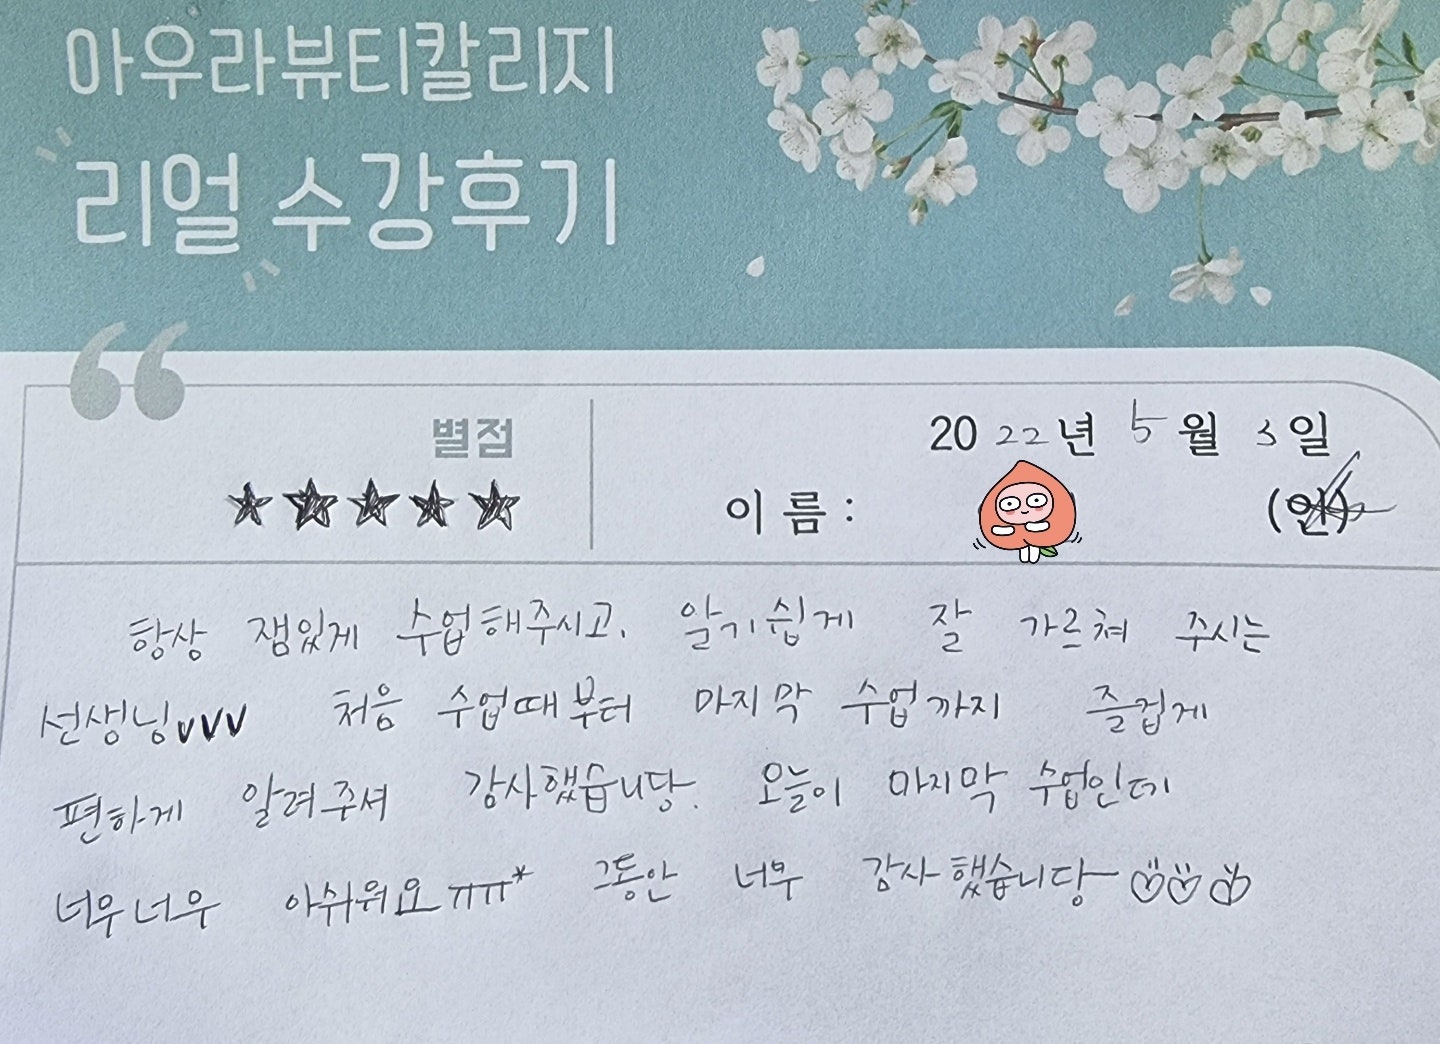 아우라뷰티칼리지
리얼 수강후기
별점
★★★★★
2022년 5월 3일
이름 : (인)
항상 잼있게 수업해주시고, 알기쉽게 잘 가르쳐 주시는
선생닝vvv 처음 수업때부터 마지막 수업까지 즐겁게
편하게 알려주셔 감사했습니당. 오늘이 마지막 수업인데
너무너무 아쉬워요ㅠㅠ* 그동안 너무 감사했습니당~ ♡♡♡